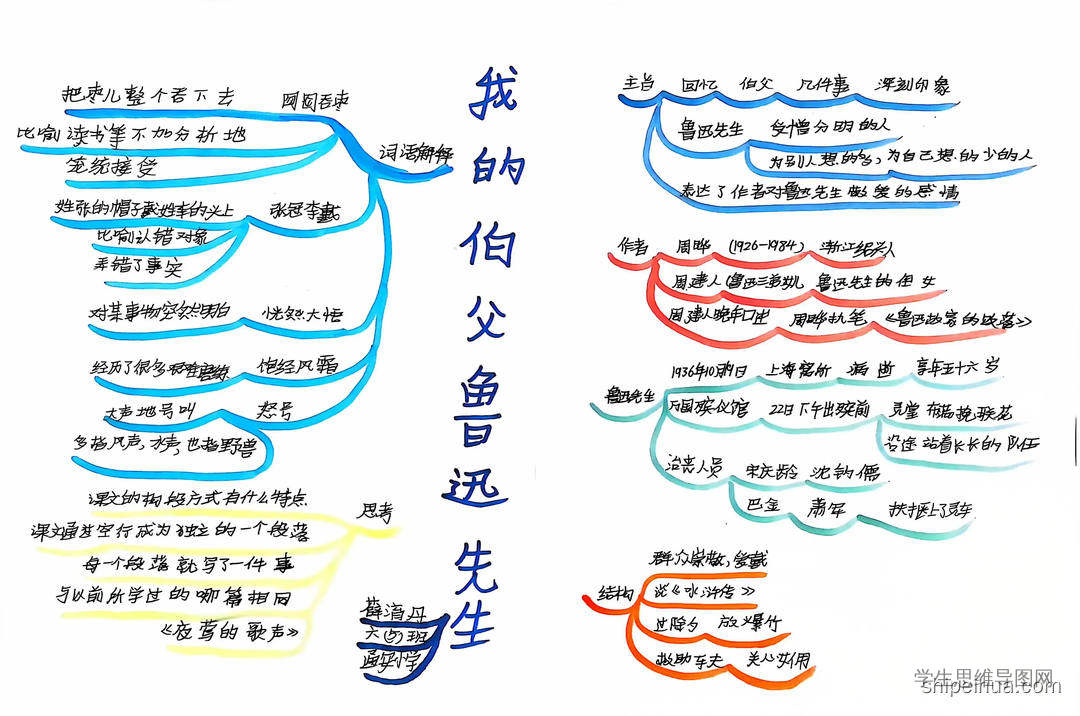 我的伯父鲁迅先生
词语解释
囫囵吞枣
把枣儿整个吞下去
比喻读书等不加分析地
笼统接受
张冠李戴
姓张的帽子戴姓李的头上
比喻认错对象
弄错了事实
恍然大悟
对某事物突然明白
饱经风霜
经历了很多艰难磨练
怒号
大声地号叫
多指风声,水声,也指野兽
思考
课文的构段方式有什么特点
课文通过空行成为独立的一个段落
每一个段落就写了一件事
与以前所学过的哪篇相同
《夜莺的歌声》
丹
班
小学
主旨 回忆 伯父 几件事 深刻印象
鲁迅先生 爱憎分明的人
为别人想的多,为自己想的少的人
表达了作者对鲁迅先生 的感情
作者 周晔 (1926-1984) 浙江绍兴人
周建人(鲁迅三弟)女儿 鲁迅先生的侄女
周建人晚年口述 周晔执笔 《鲁迅故家的败落》
鲁迅先生
1936年10月19日 上海寓所 病逝 享年五十六岁
万国殡仪馆 22日下午出殡前 灵堂 布满挽联花
沿途 站着长长的队伍
治丧人员 宋庆龄 沈钧儒
巴金 萧军 扶柩上灵车
结构
群众崇敬,爱戴
谈《水浒传》
过除夕 放爆竹
救助车夫 关心女佣
学生思维导图网
shipeihua.com